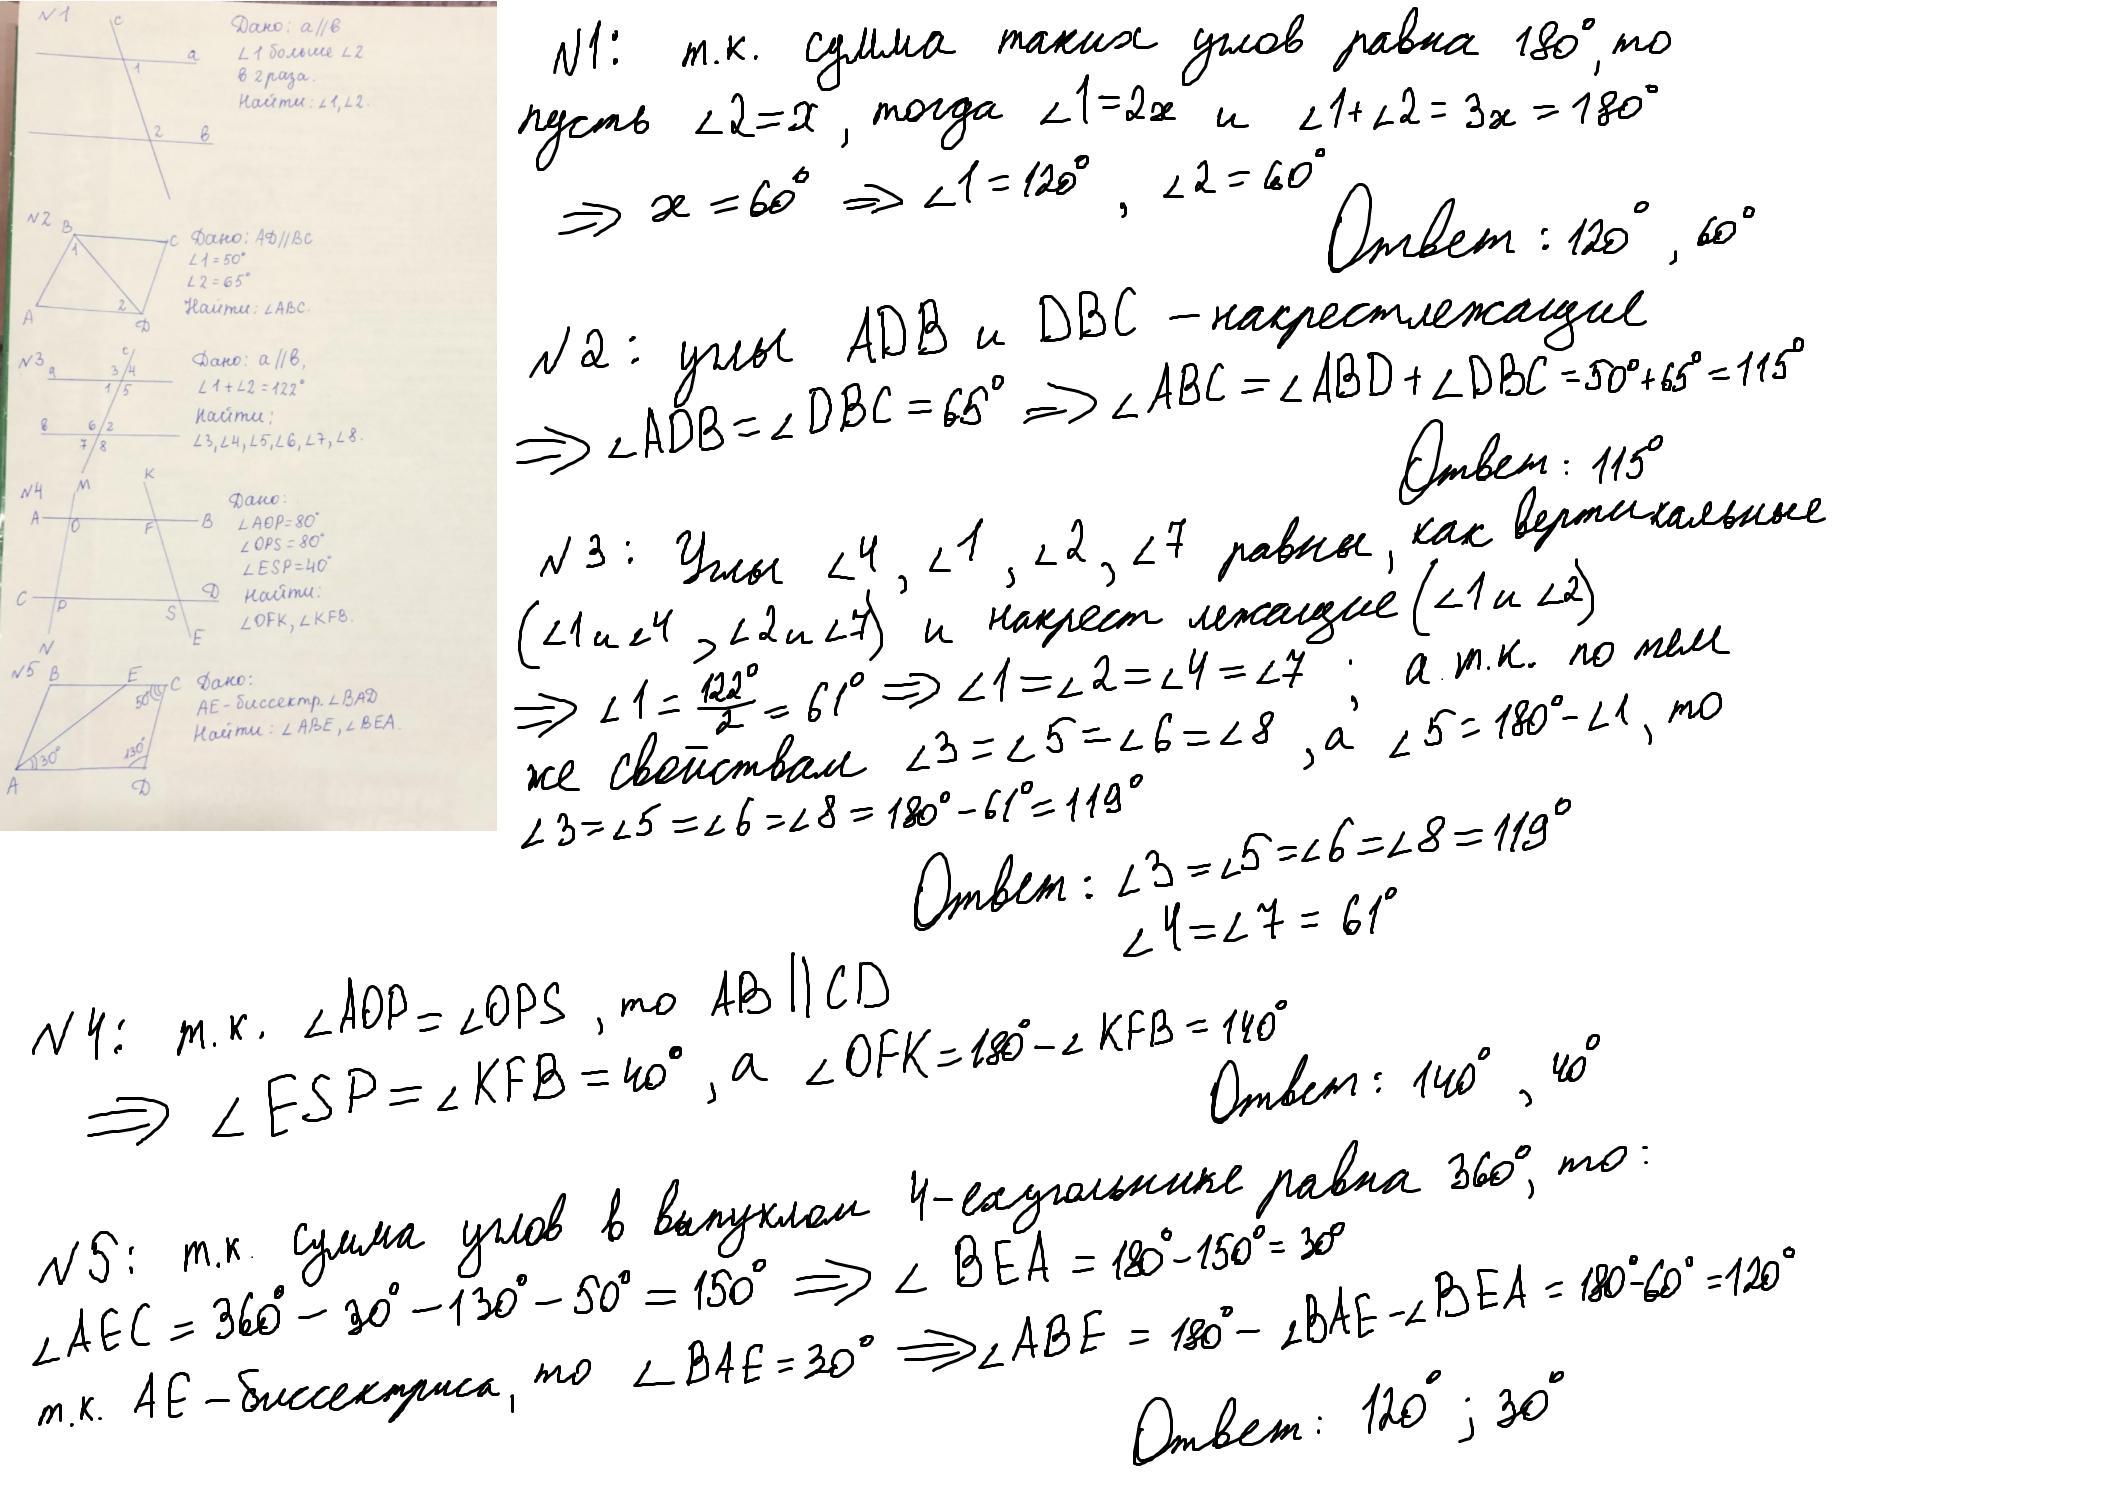 N1
c
a
1
2
в
Дано: a//в
∠1 больше ∠2
в 2 раза.
Найти: ∠1, ∠2.
N2
B
C
1
2
A
D
Дано: AD//BC
∠1=50°
∠2=65°
Найти: ∠ABC.
N3
a
c
3 4
1 5
в
6 2
7 8
Дано: a//в,
∠1+∠2=122°
Найти:
∠3,∠4,∠5,∠6,∠7,∠8.
N4
M
K
A
O
F
B
C
P
S
D
N
E
Дано:
∠AOP=80°
∠OPS=80°
∠ESP=40°
Найти:
∠OFK, ∠KFB.
N5
B
E
C
50°
30°
130°
A
D
Дано:
AE-биссектр. ∠BAD
Найти: ∠ABE, ∠BEA.
N1: т.к. сумма таких углов равна 180°, то
пусть ∠2=x, тогда ∠1=2x и ∠1+∠2=3x=180°
⇒ x=60° ⇒ ∠1=120°, ∠2=60°
Ответ: 120°, 60°
N2: углы ADB и DBC – накрестлежащие
⇒ ∠ADB=∠DBC=65° ⇒ ∠ABC=∠ABD+∠DBC=50°+65°=115°
Ответ: 115°
N3: Углы ∠4, ∠1, ∠2, ∠7 равны, как вертикальные
(∠1 и ∠4, ∠2 и ∠7) и накрест лежащие (∠1 и ∠2)
⇒ ∠1=122°/2=61° ⇒ ∠1=∠2=∠4=∠7; а т.к. по тем
же свойствам ∠3=∠5=∠6=∠8, а ∠5=180°-∠1, то
∠3=∠5=∠6=∠8=180°-61°=119°
Ответ: ∠3=∠5=∠6=∠8=119°
∠4=∠7=61°
N4: т.к. ∠AOP=∠OPS, то AB||CD
⇒ ∠ESP=∠KFB=40°, а ∠OFK=180°-∠KFB=140°
Ответ: 140°, 40°
N5: т.к. сумма углов в выпуклом 4-ехугольнике равна 360°, то:
∠AEC=360°-30°-130°-50°=150° ⇒ ∠BEA=180°-150°=30°
т.к. AE-биссектриса, то ∠BAE=30° ⇒ ∠ABE=180°-∠BAE-∠BEA=180°-60°=120°
Ответ: 120°; 30°